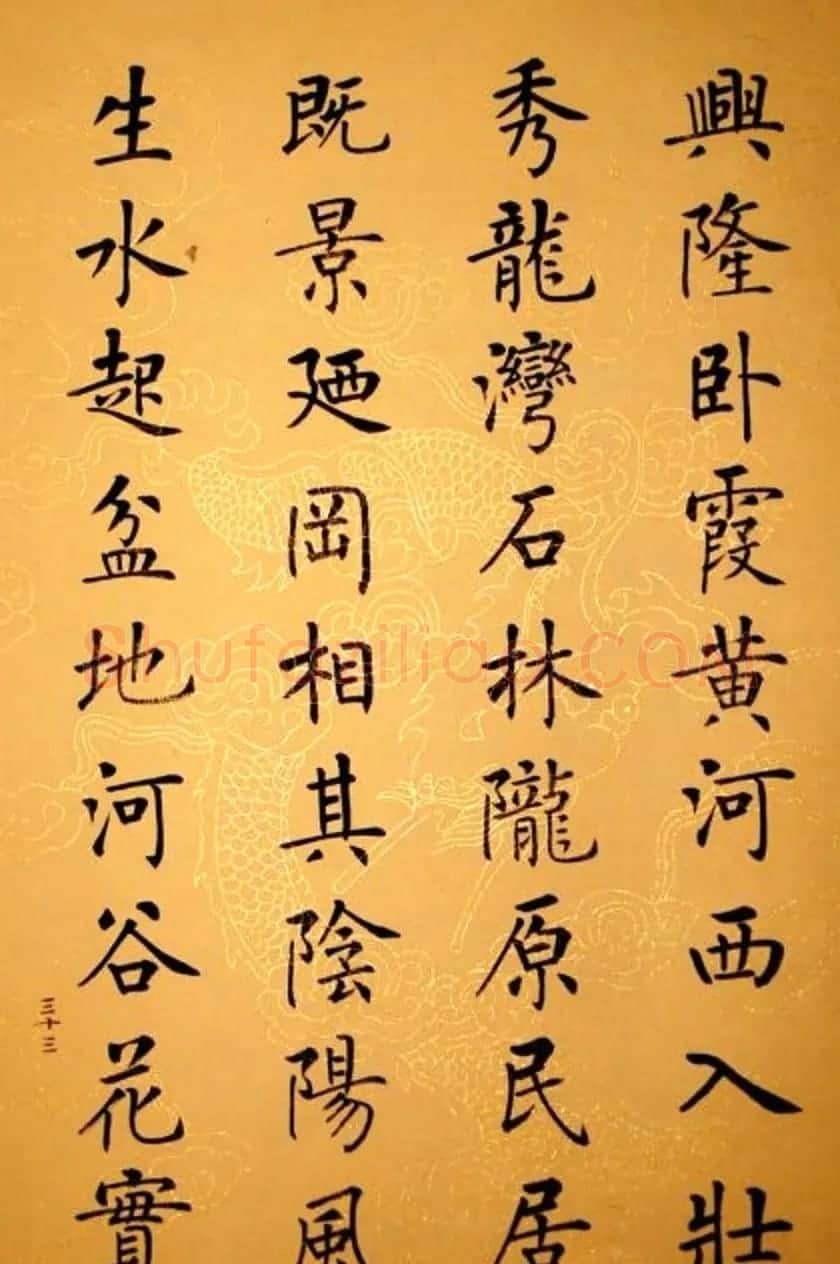 興隆卧霞黄河西入壯
秀龍灣石林隴原民居
既景廼岡相其陰陽風
生水起盆地河谷花實
三十三
Shufaziliao.COM